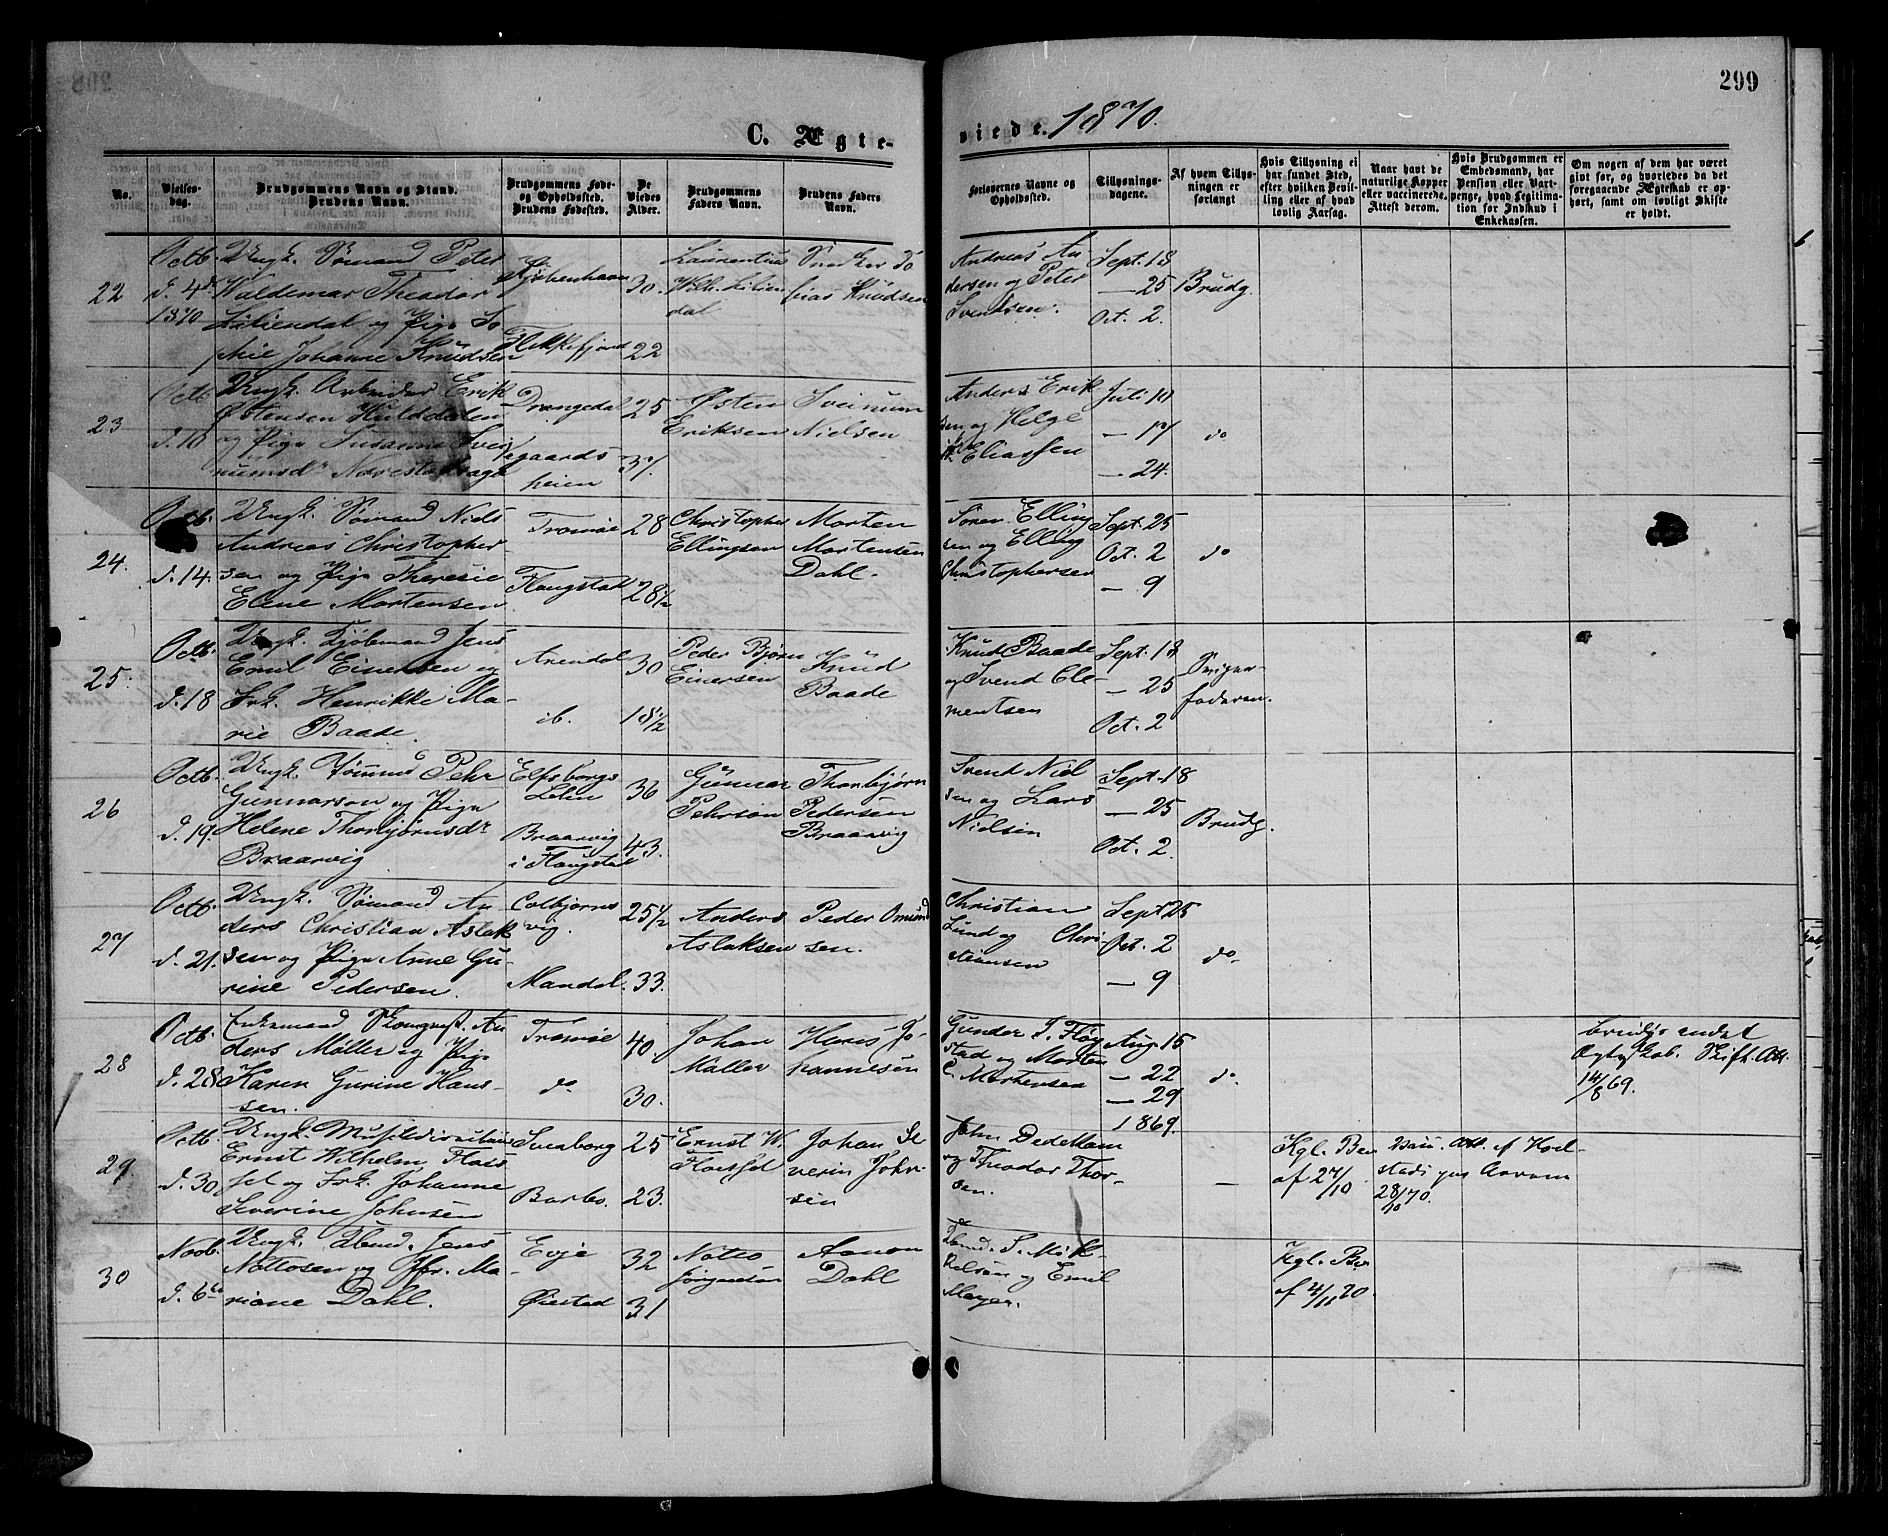 299
C. Ægte-
viede. 1870.
No.
Vielses-
dag.
Brudgommens Navn og Stand.
Brudens Navn.
Brudgommens Føde-
og Opholdssted.
Brudens Fødested.
De
Viedes
Alder.
Brudgommens
Faders Navn.
Brudens Faders
Navn.
Forlovernes Navne og
Opholdssted.
Tillysnings-
dagene.
Af hvem Tillys-
ningen er
forlangt
Hvis Tillysning ei
har fundet Sted,
efter hvilken Bevil-
ling eller af hvad
lovlig Aarsag.
Naar havt de
naturlige Kopper
eller vaccinerede.
Attest derom.
Hvis Brudgommen er
Embedsmand, har
Pension eller Vart-
penge, hvad Legitima-
tion for Indskud i
Enkekassen.
Om nogen af dem har været
gift før, og hvorledes da det
foregaaende Ægteskab er op-
hørt, samt om lovligt Skifte
er holdt.
22
Octb.
d. 4de
1870
Ungk. Sømand Peter
Waldemar Theodor
Liliendal og Pige So
phie Johanne Knudsen
Kjøbenhavn
Flekkefjord
30.
22
Laurentius
Wilh. Lilien
dal
Snedker To
bias Knudsen
Andreas An
dersen og Peter
Svendsen.
Sept. 18
— 25
Oct. 2.
Brudg.
23
Octb
d. 10
Ungk. Arbeider Erik
Østensen Hulddalen
og Pige Susanne Svei
numsd.
Drangedal
gaards-
heien
25
37.
Østen
Eriksen
Sveinum
Nielsen
Anders Erik
sen og Helge
Eliassen
Juli 10
— 17
— 24.
do
24.
Octb.
d. 14.
Ungk. Sømand Niels
Andreas Christopher
sen og Pige Theresie
Elene Mortensen
Tromøe
Flaugstad
28
28½
Christopher
Ellingsen
Morten
Mortensen
Dahl.
Søren Elling
sen og Elling
Christophersen
Sept. 25
Oct. 2
— 9
do
25.
Octb.
d. 18
Ungk. Kjøbmand Jens
Emil Einersen og
Frk. Henrikke Ma-
rie Baade.
Arendal
ib.
30
18½
Peder Bjørn
Einersen
Knud
Baade
Knud Baade
og Svend Cle-
mentsen
Sept. 18
— 25
Oct. 2
Sviger-
faderen.
26
Octb.
d. 19.
Ungk. Sømand Pehr
Gunnarson og Pige
Helene Thorbjørnsdr
Braarvig
Elfsborgs
Lehn
Braarvig
i Flaugstad
36
43.
Gunnar
Pehrson
Thorbjørn
Pedersen
Braarvig
Svend Niel
sen og Lars
Nielsen
Sept. 18
— 25
Oct. 2.
Brudg.
27
Octb.
d. 21.
Ungk. Sømand An
ders Christian Aslak
sen og Pige Anne Gu-
rine Pedersen.
Colbjørns
vig.
Mandal.
25½
33.
Anders
Aslaksen
Peder Omund
sen.
Christian
Lund og Chri-
stiansen
Sept. 25
Oct. 2
— 9
do
28
Octb.
d. 28
Enkemand An
ders Møller og Pige
Karen Gurine Han-
sen.
Tromøe
do
40.
30.
Johan
Møller
Hans Jo-
hannesen
Gunder J. Fløy
stad og Morten
C. Mortensen
Aug. 15
— 22
— 29
1869.
do
Ægteskab. Skift. Att.
14/8 69.
29.
Octb.
d. 30
Ungk. Musikdirecteur
Ernst Wilhelm Floes
sel og Frk. Johanne
Severine Johnsen
Sveaborg
Barbo.
25
23.
Ernst W.
Floessel
Johan Se
verin John-
sen
John Dedekam
og Theodor Thor-
sen.
—
Kgl. Bev
af 27/10.
28/10 70.
30
Novb.
d. 6te
Ungk. Jens
Nottosen og Jfr. Ma-
riane Dahl.
Evje
Øiestad
32
31
Notto
Jørgensen
Aanon
Dahl
S. Mik-
kelsen og Emil
Meyer.
Kgl. Bev
af 4/11 70.